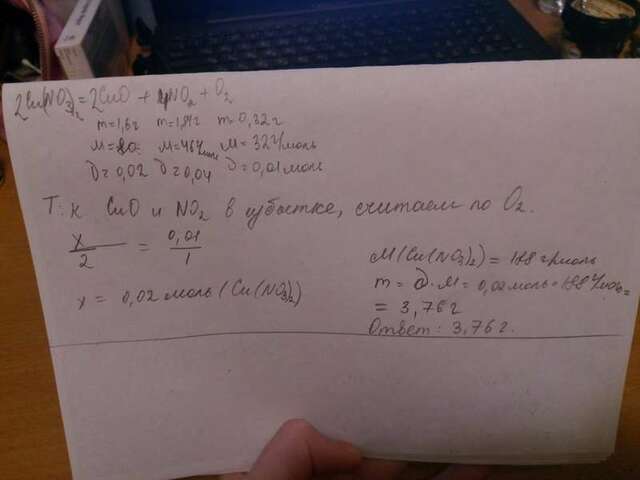 2Cu(NO3)2=2CuO + 4NO2 + O2
m=1,6г m=1,84г m=0,32г
M=80 M=46г/моль M=32г/моль
ν=0,02 ν=0,04 ν=0,01 моль
Т. к CuO и NO2 в избытке, считаем по O2.
x/2 = 0,01/1
x = 0,02 моль (Cu(NO3)2)
M(Cu(NO3)2) = 188 г/моль
m = ν·M = 0,02моль·188г/моль=
= 3,76 г
Ответ: 3,76 г.